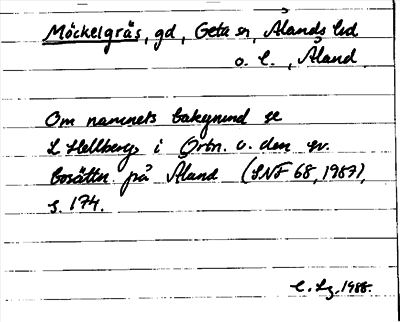 Möckelgräs, gd, Geta sn, Ålands lvd
o. l., Åland
Om namnets bakgrund se
L Hellberg, i Ortn. o. den sv.
bosättn. på Åland (SNF 68, 1987),
s. 174.
C. Lg. 1988.